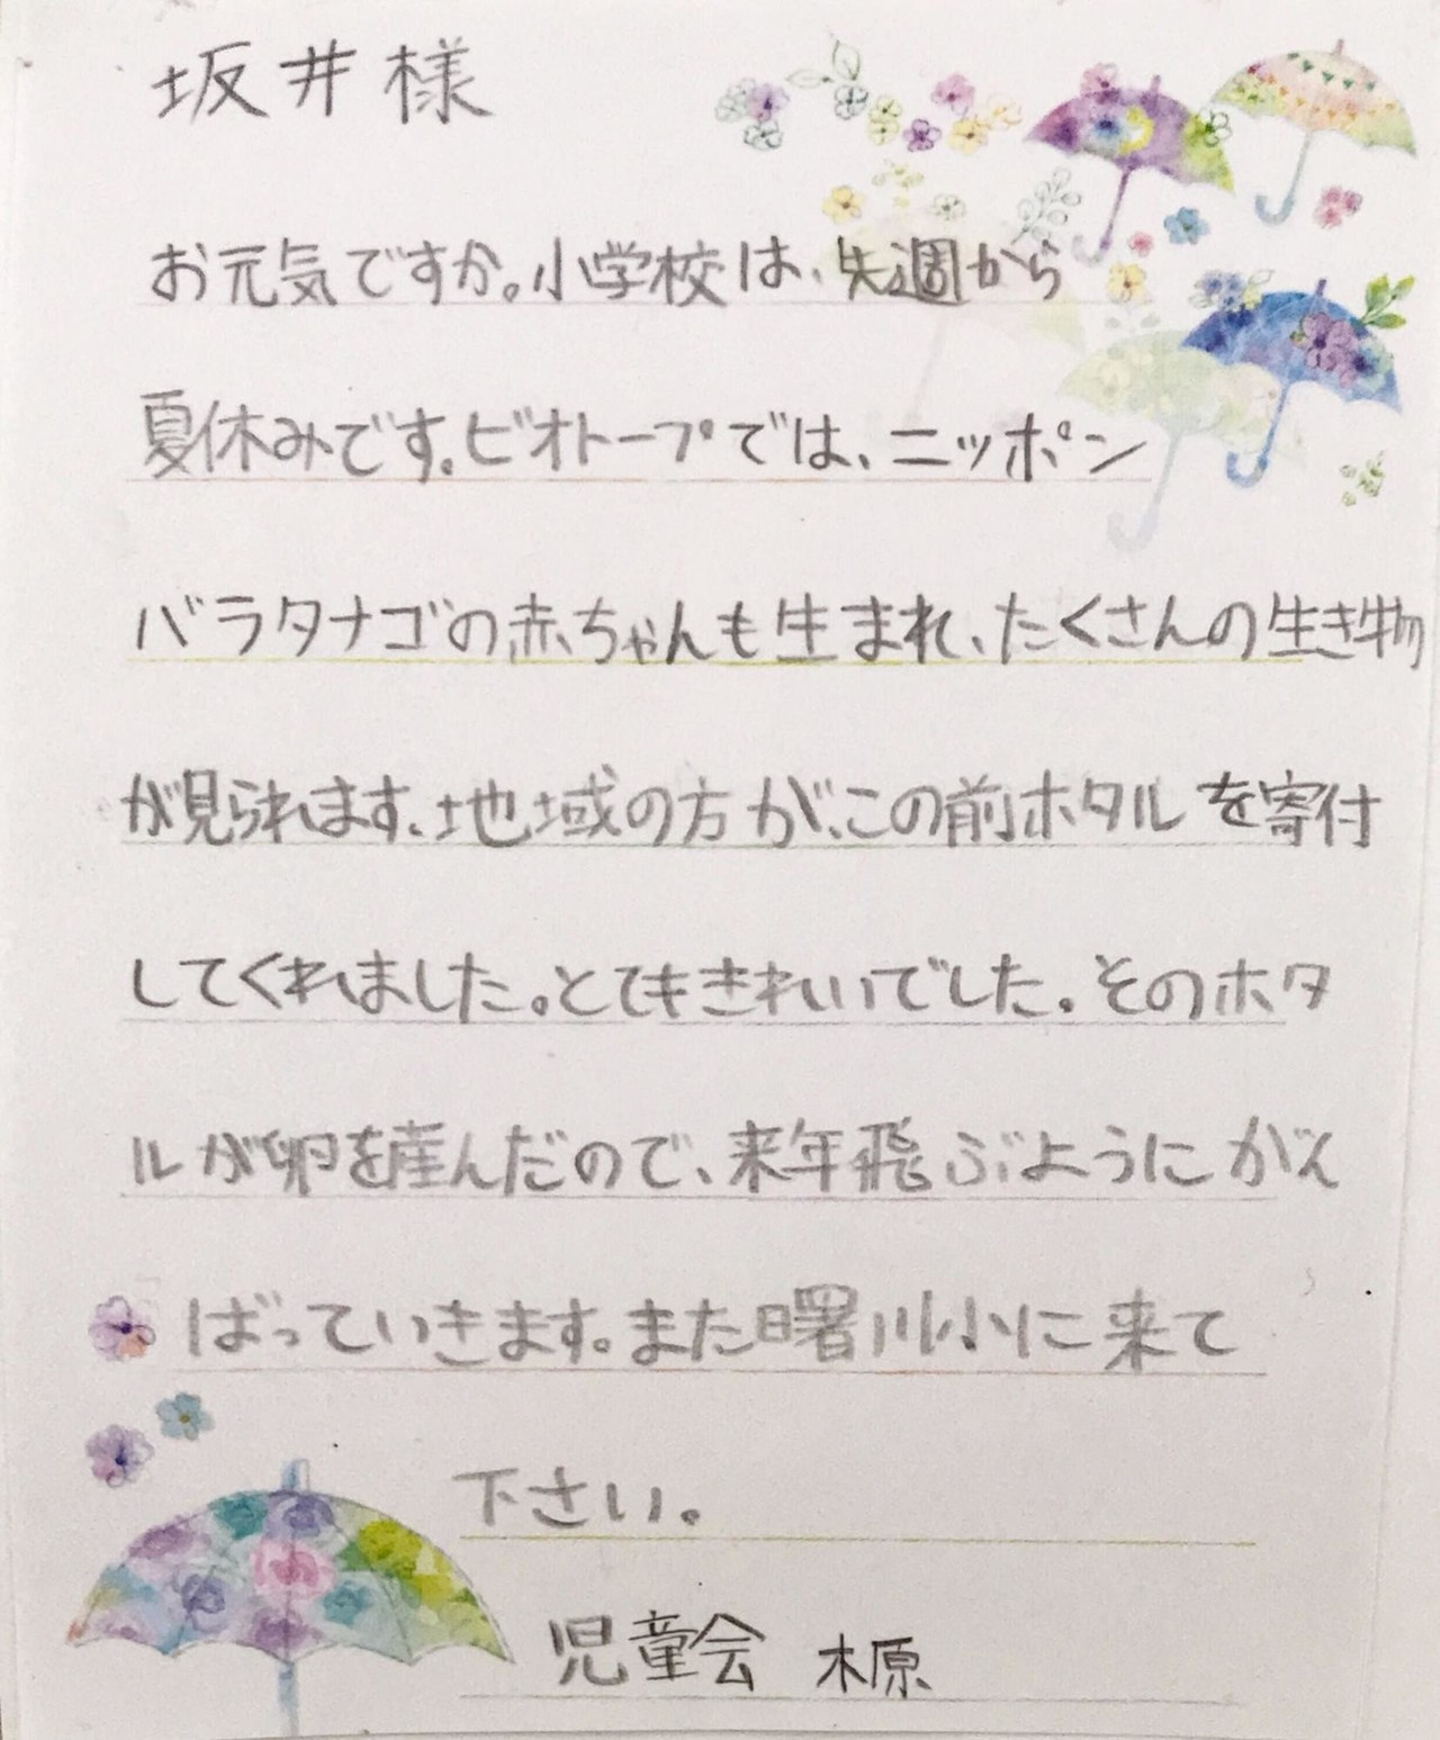 坂井様
お元気ですか。小学校は、先週から
夏休みです。ビオトープでは、ニッポン
バラタナゴの赤ちゃんも生まれ、たくさんの生き物
が見られます。地域の方が、この前ホタルを寄付
してくれました。とてもきれいでした。そのホタ
ルが卵を産んだので、来年飛ぶようにがん
ばっていきます。また曙川小に来て
下さい。
児童会 木原